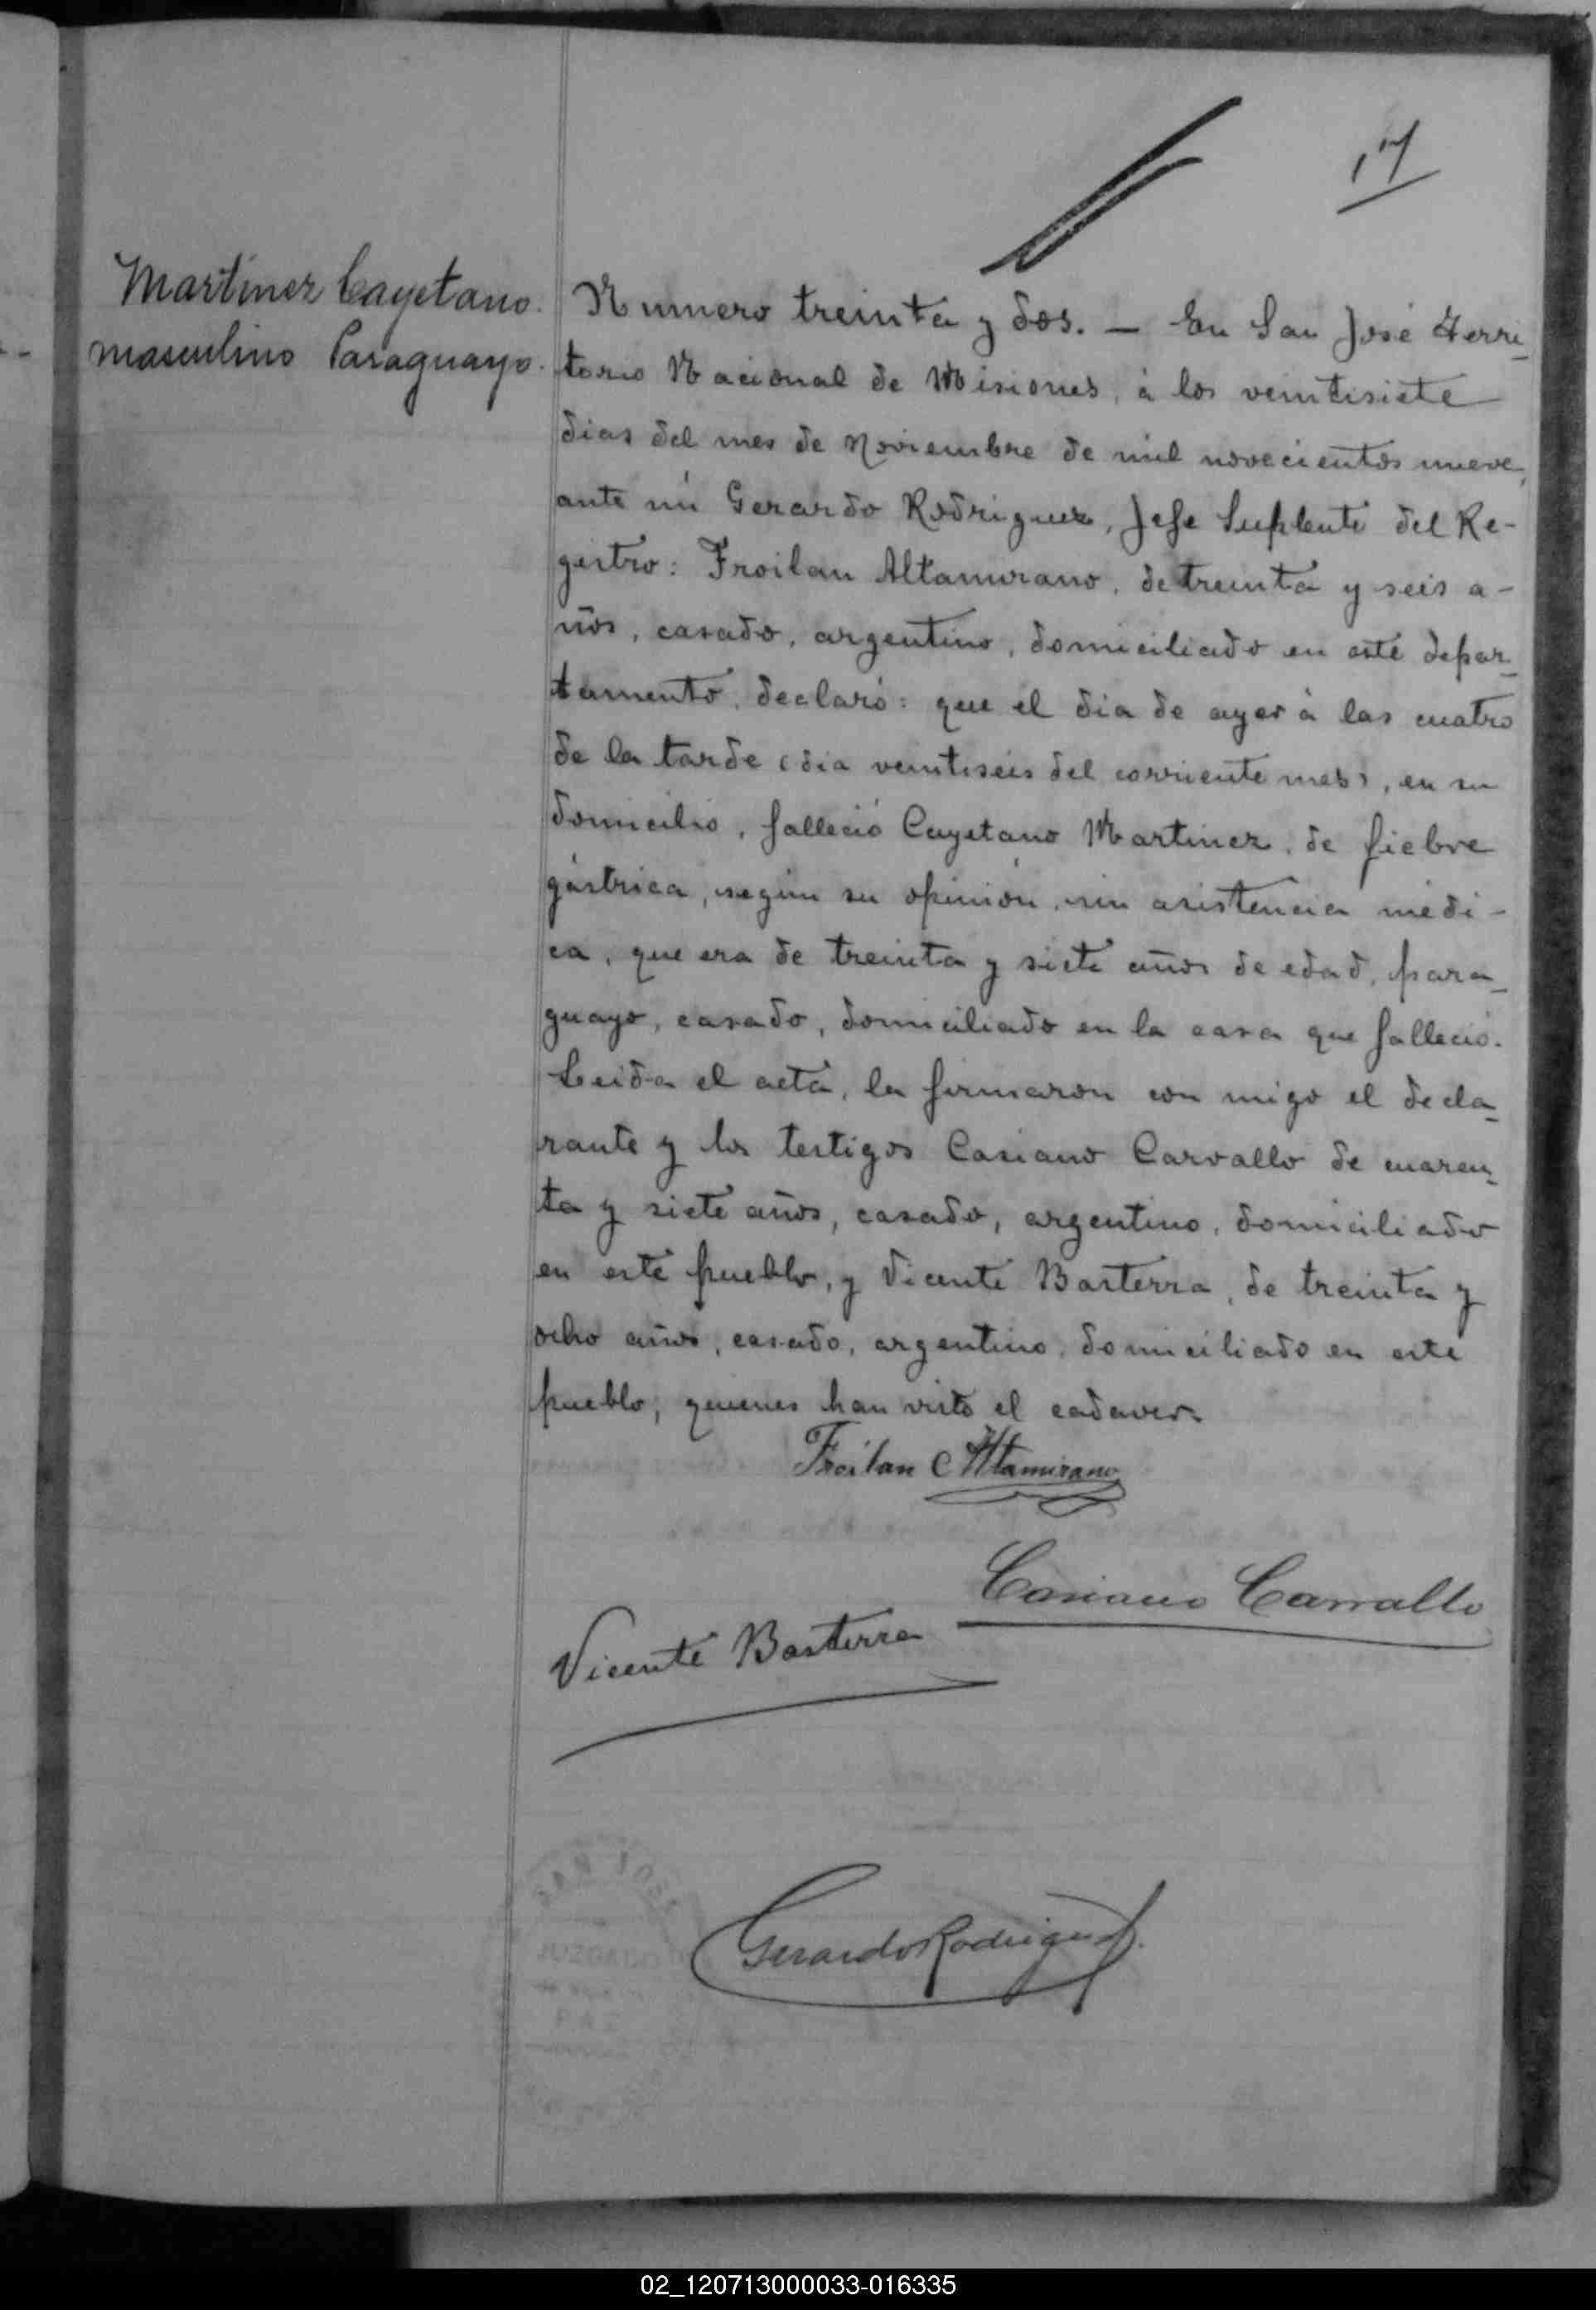 17
Martinez Cayetano.
masculino Paraguayo.
Numero treinta y dos. — En San José Terri_
torio Nacional de Misiones, á los veintisiete
dias del mes de Noviembre de mil novecientos nueve,
ante mí Gerardo Rodriguez, Jefe Suplente del Re-
gistro: Froilan Altamirano, de treinta y seis a-
ños, casado, argentino, domiciliado en este depar_
tamento, declaró: que el dia de ayer á las cuatro
de la tarde (dia veintiseis del corriente mes), en su
domicilio, falleció Cayetano Martinez, de fiebre
gástrica, según su opinión, sin asistencia médi-
ca, que era de treinta y siete años de edad, para_
guayo, casado, domiciliado en la casa que falleció.
Leida el acta, la firmaron con migo el decla_
rante y los testigos Casiano Carvallo de cuaren_
ta y siete años, casado, argentino, domiciliado
en este pueblo, y Vicente Basterra, de treinta y
ocho años, casado, argentino, domiciliado en este
pueblo, quienes han visto el cadaver.
Froilan Altamirano
Casiano Carvallo
Vicente Basterra
Gerardo Rodriguez
02_120713000033-016335